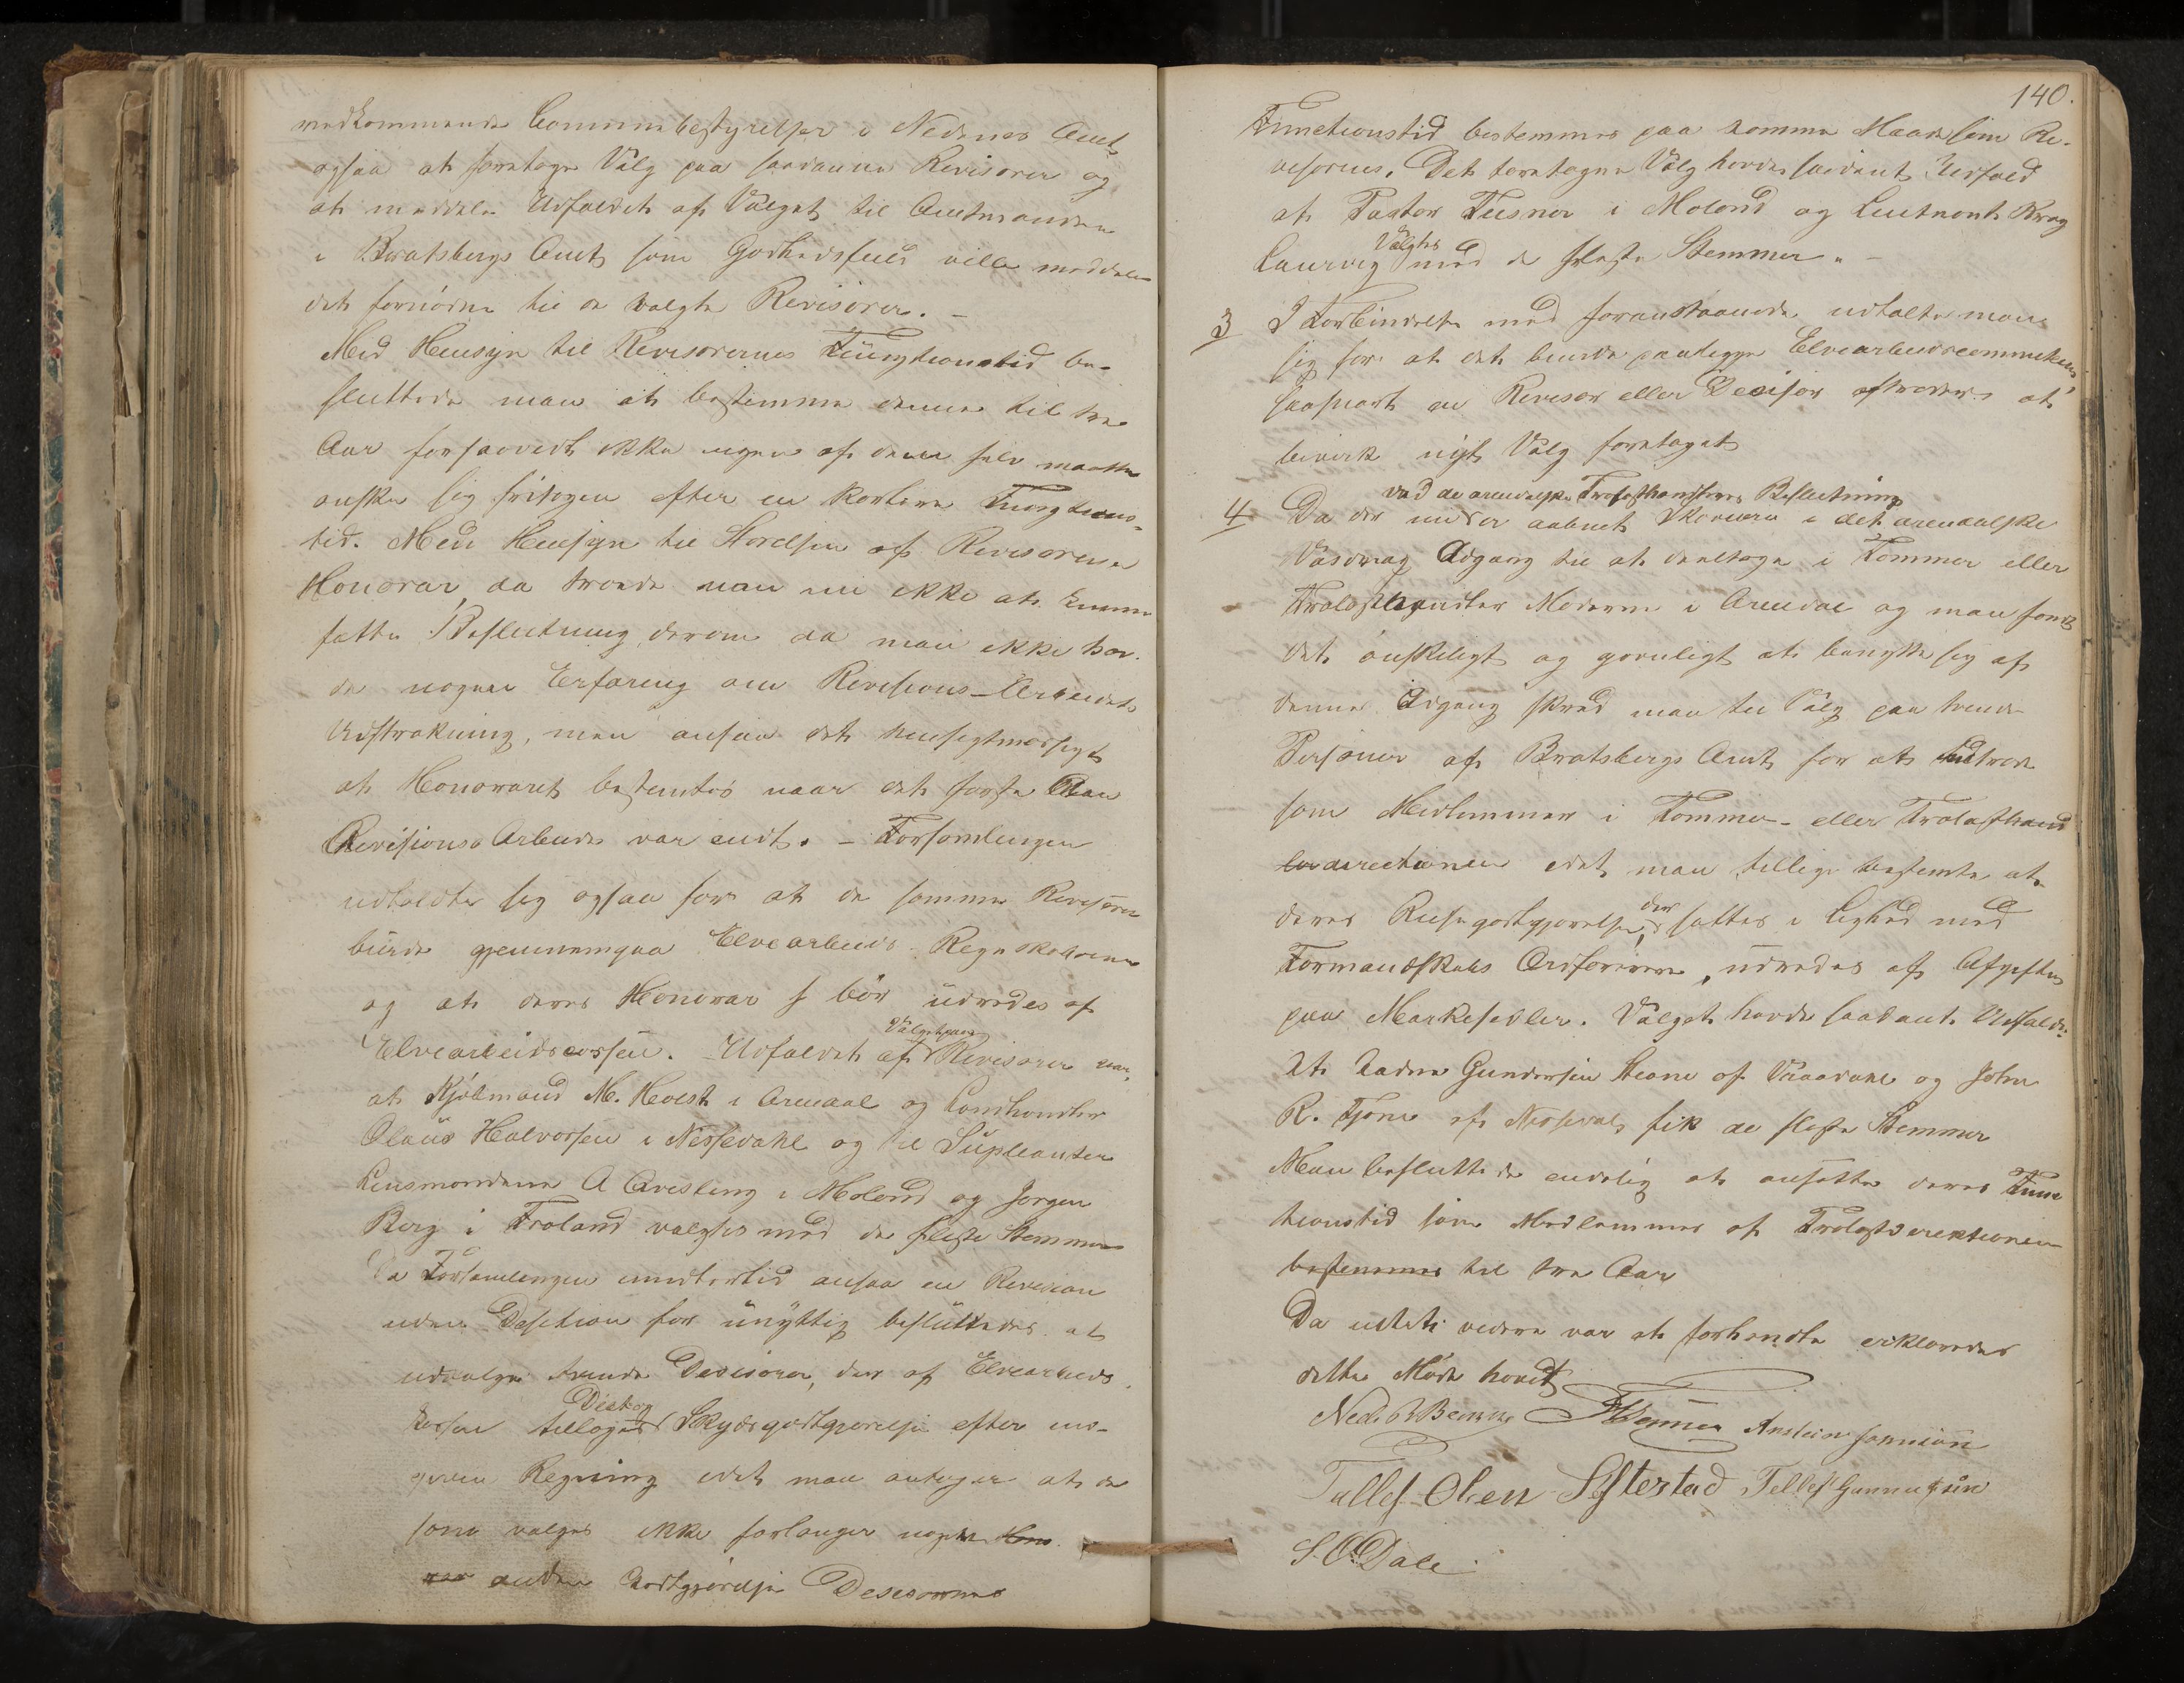 vedkommende Communebestyrelser i Nedenes Amt
ogsaa at foretage Valg paa saadanne Revisorer og
at meddele Udfaldet af Valget til Amtmanden
i Bratsbergs Amt som Godhedsfuld ville meddele
det fornødne til de valgte Revisorer. –
Med Hensyn til Revisorernes Fungtionstid be-
sluttede man at bestemme denne til tre
Aar forsaavidt ikke nogen af dem selv maatte
ønske sig fritagen efter en kortere Fungtions-
tid. Med Hensyn til Størelsen af Revisorernes
Honorar, da troede man nu ikke at kunne
fatte Beslutning derom da man ikke hav-
de nogen Erfaring om Revisions-Arbeidets
Udstrækning, men ansaa det hensigtmæssigt
at Honoraret bestemtes naar det første Aars
Revisions Arbeide var endt. – Forsamlingen
udtalte sig ogsaa for at de samme Revisorer
burde gjennemgaa Elvearbeids-Regnskaberne
og at deres Honorar bør udredes af
Elvearbeidscassen. – Udfaldet af Valget paa Revisorer var,
at Kjøbmand M. Holst i Arendal og Landhandler
Olaüs Halvorsen i Nissedahl og til Suplianter
Lensmændene A Qvisling i Moland og Jørgen
Berg i Froland valgtes med de fleste Stemmer
Da Forsamlingen imidlertid ansaa en Revision
uden Desition for unyttig besluttedes at
udvælge tvende Decisorer, der af Elvearbeids
kassen tillægges Diæt og Skydsgodtgjørelse efter ind-
given Regning idet man antager at de
som valges ikke forlanger nogen
anden Godtgjørelse Desesorernes
140.
Functionstid bestemmes paa samme Maade som Re-
visorens. Det foretagne Valg havde saadant Udfald
at Pastor Tusner i Moland og Leutnant Krag
Laurvig valgtes med de fleste Stemmer. –
3 I Forbindelse med foranstaaende udtalte man
sig for at det burde paalægges Elvearbeidscommitteen,
saasnart en Revisor eller Decisor aftræder at
bevirke nyt Valg foretaget
4 Da der under aabnet Skoveiere i det arendalske
ved de arendalske Trælasthandleres Beslutning
Vasdrag Adgang til at deeltage i Tømmer eller
Trælasthandler Møderne i Arendal og man fandt
det ønskeligt og gavnligt at benytte sig af
denne Adgang skred man til Valg paa tvende
Personer af Bratsbergs Amt for at indtræde
som Medlemmer i Tømmer- eller Trælasthand
lerdirectionen idet man tillige bestemte at
deres Reisegodtgjørelse, der sættes i Lighed med
Formandskabs Ordførerne, udredes af Afgiften
paa Mærkesedler. Valget havde saadant Udfald:
At Aadne Gundersen Steane af Vraadahl og John
R. Tjønn af Nissedal, fik de fleste Stemmer
Man besluttede endelig at ansætte deres Func
tionstid som Medlemmer af Trælastdirektionen
bestemmes til tre Aar
Da intet videre var at forhandle erklæredes
dette Møde hævet
Tallef Olsen Sefterstad Tellef Gunnufsen
S. O. Dale